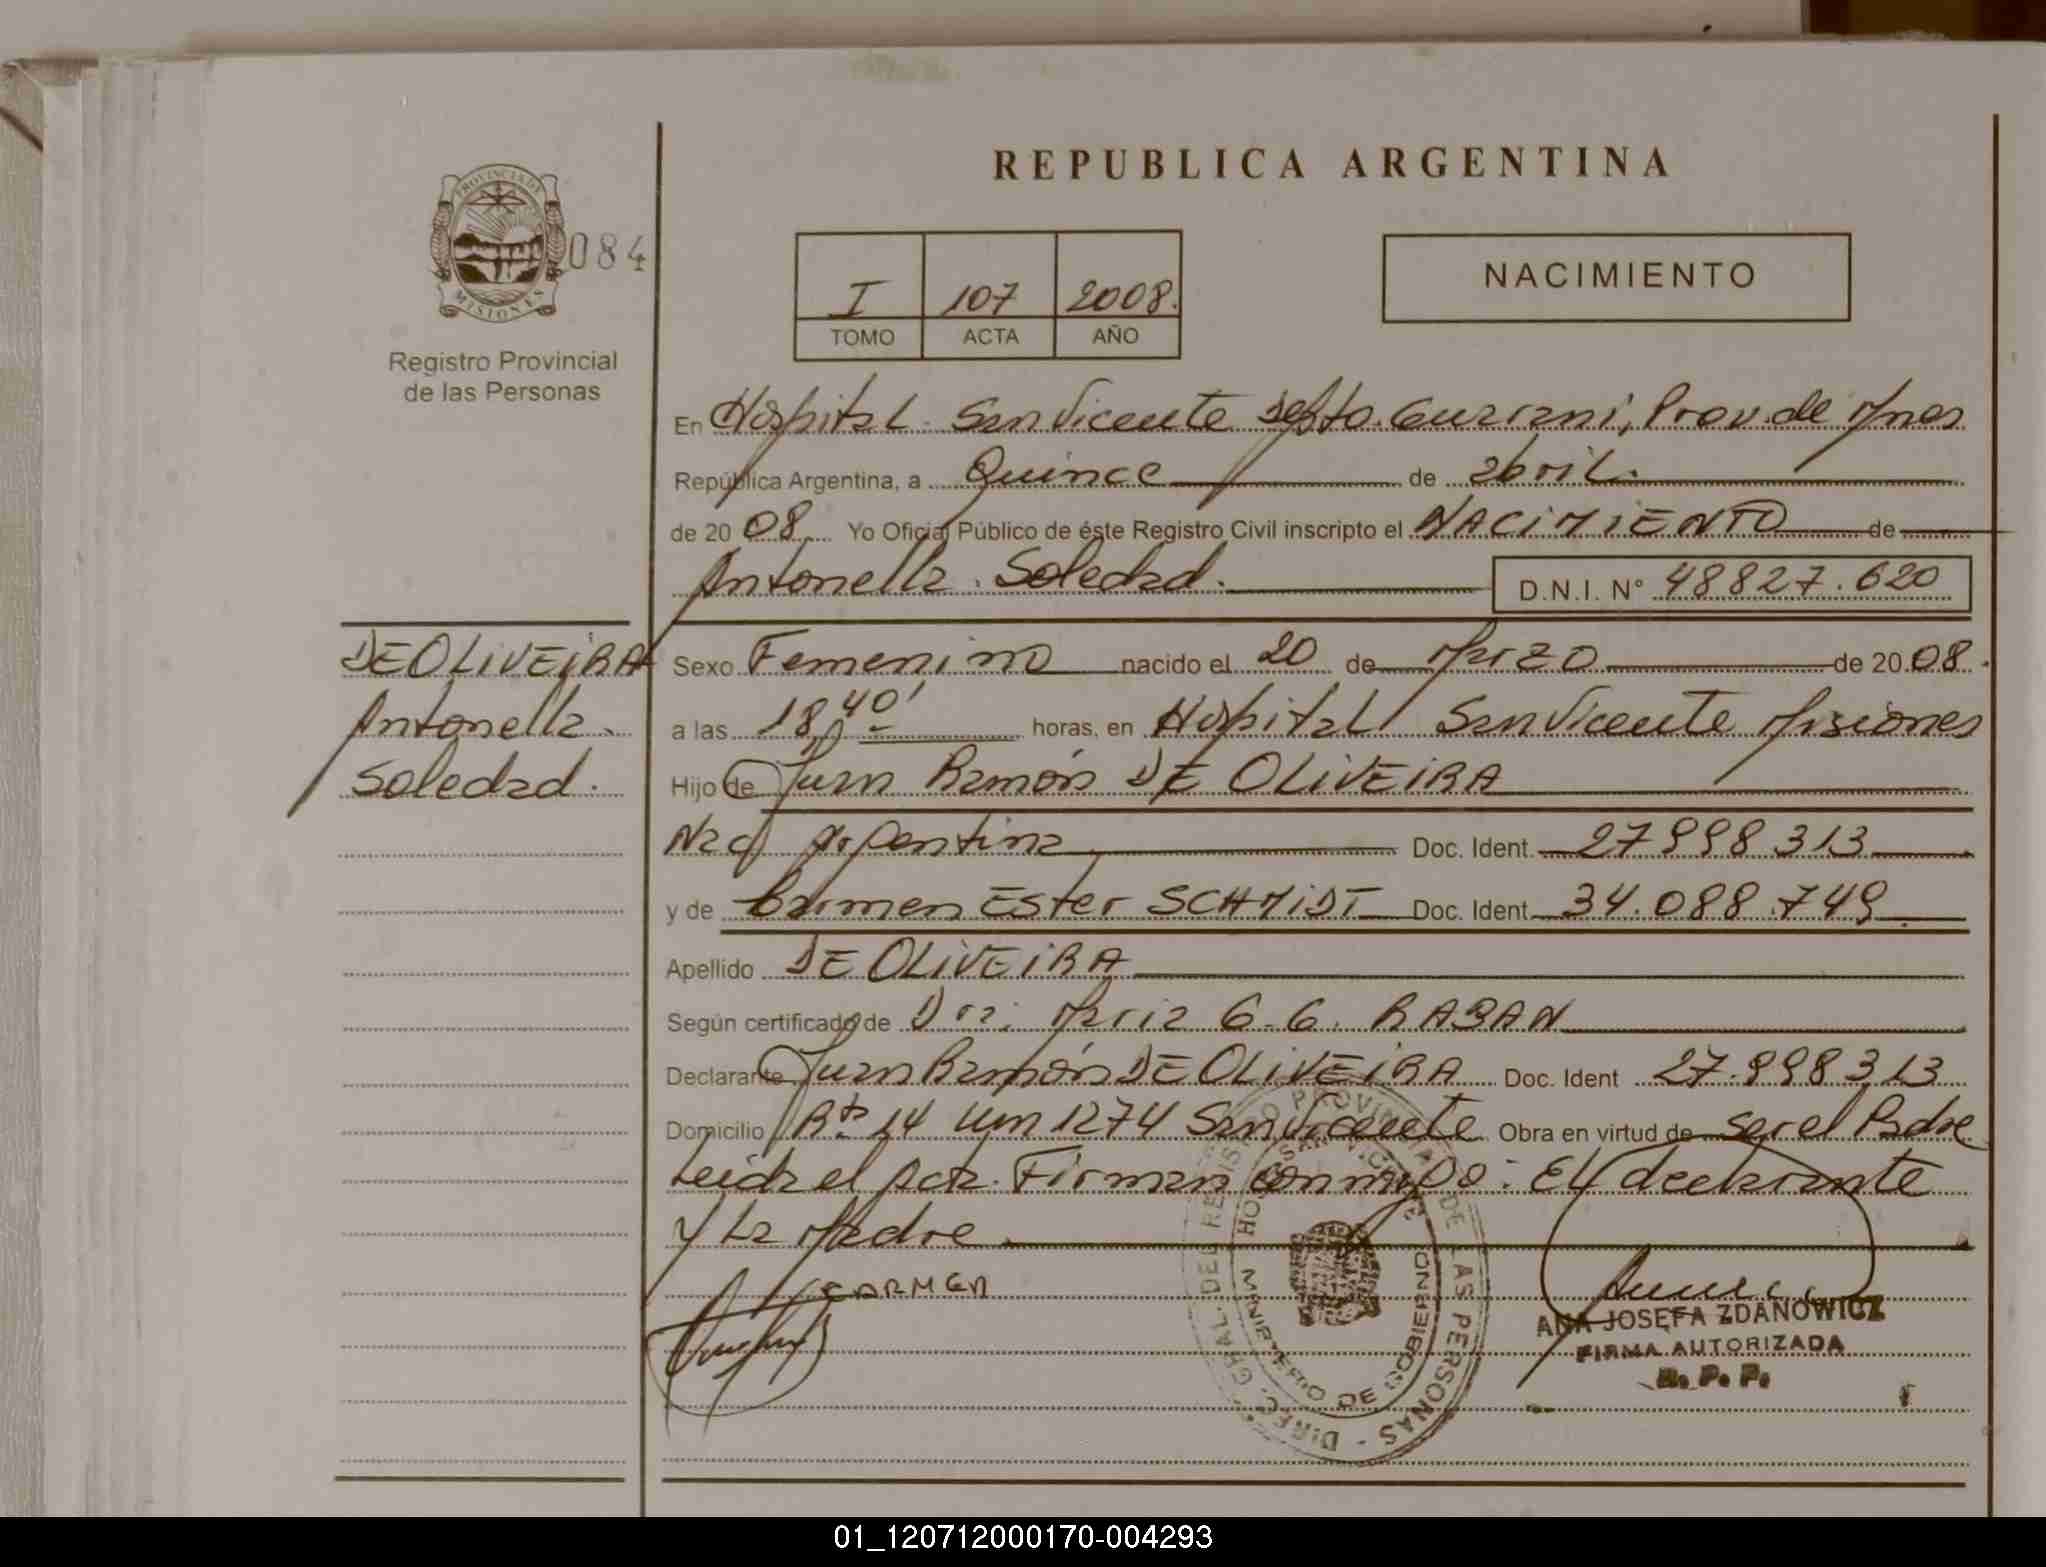 REPUBLICA ARGENTINA
PROVINCIA DE
MISIONES
084
Registro Provincial
de las Personas
I 107 2008.
TOMO ACTA AÑO
NACIMIENTO
En Hospital San Vicente Depto. Guarani, Prov. de Mnes
República Argentina, a Quince de abril.
de 20 08. Yo Oficial Público de éste Registro Civil inscripto el NACIMIENTO de
Antonella Soledad. D.N.I. N° 48827.620
DE OLIVEIRA
Antonella
Soledad.
Sexo Femenino nacido el 20 de Marzo de 20 08.
a las 18,40' horas, en Hospital San Vicente Misiones
Hijo de Juan Ramón DE OLIVEIRA
Nac. Argentina Doc. Ident. 27998313
y de Carmen Ester SCHMIDT Doc. Ident. 34.088.749
Apellido DE OLIVEIRA
Según certificado de Dra. Maria G. G. RABAN
Declarante Juan Ramón DE OLIVEIRA Doc. Ident 27.998313
Domicilio Rta 14 Km 1274 San Vicente Obra en virtud de ser el Padre
Leida el Acta. Firman conmigo: El declarante
y La Madre
CARMEN
DIREC. GRAL. DEL REGISTRO PROVINCIAL DE LAS PERSONAS
MINISTERIO DE GOBIERNO
ANA JOSEFA ZDANOWICZ
FIRMA AUTORIZADA
R. P. P.
01_120712000170-004293